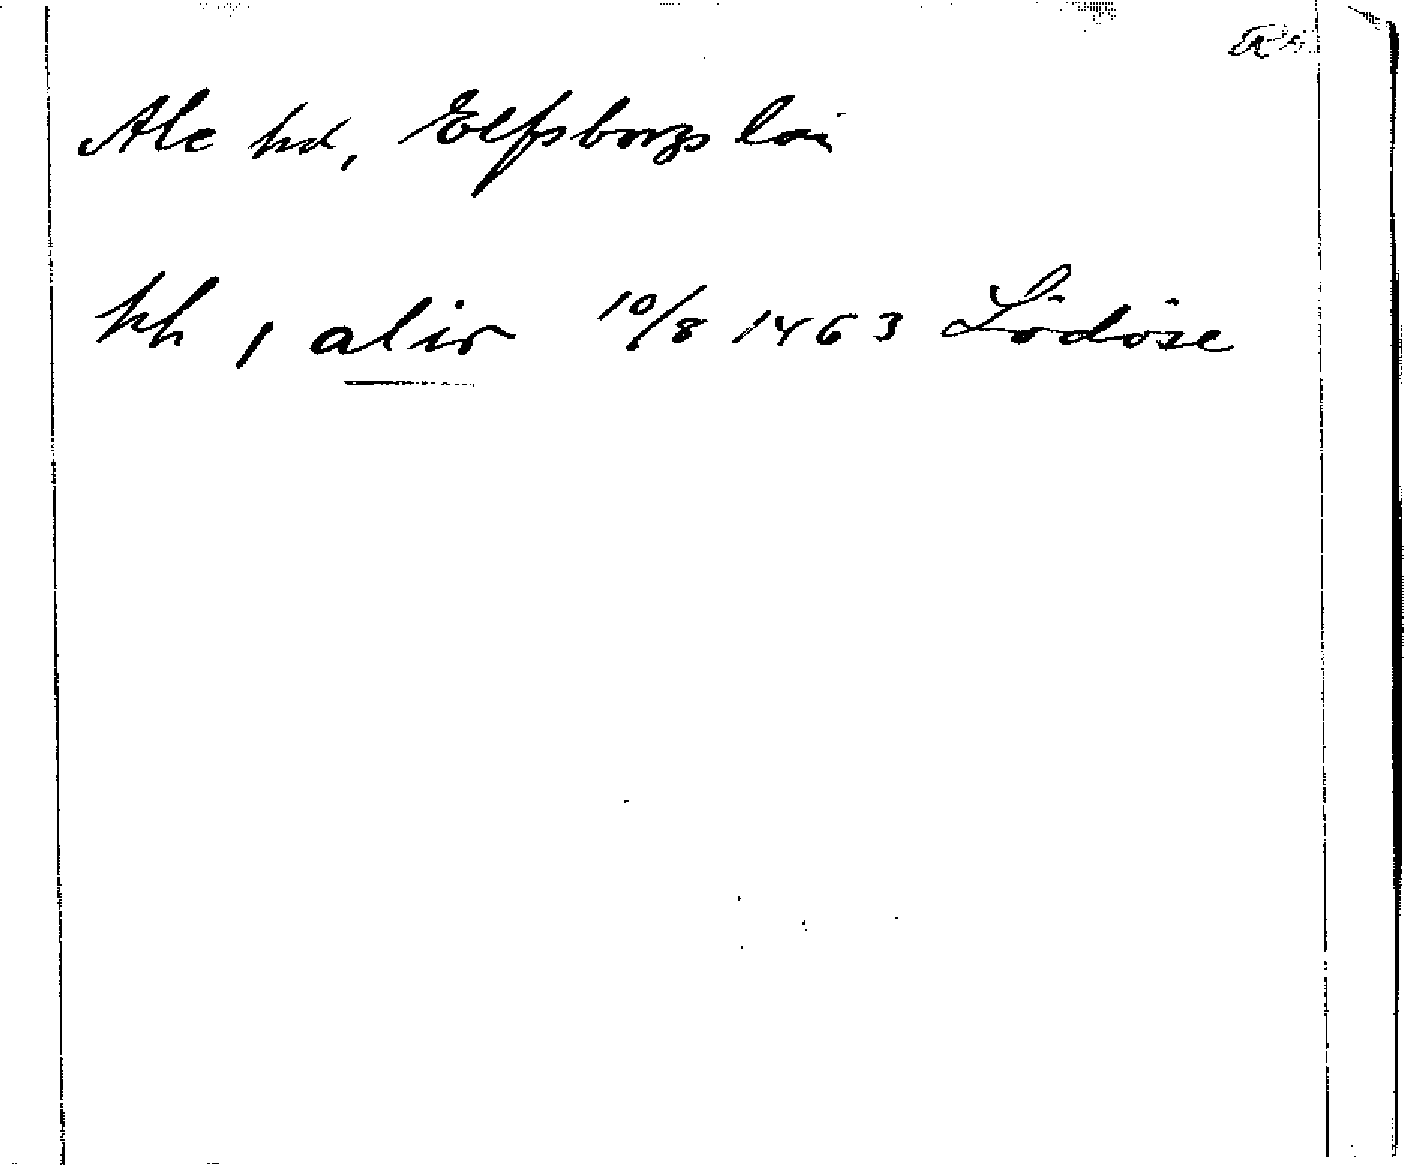 Ale hd, Elfsborgs län
hh, alir 10/8 1463 Lödöse